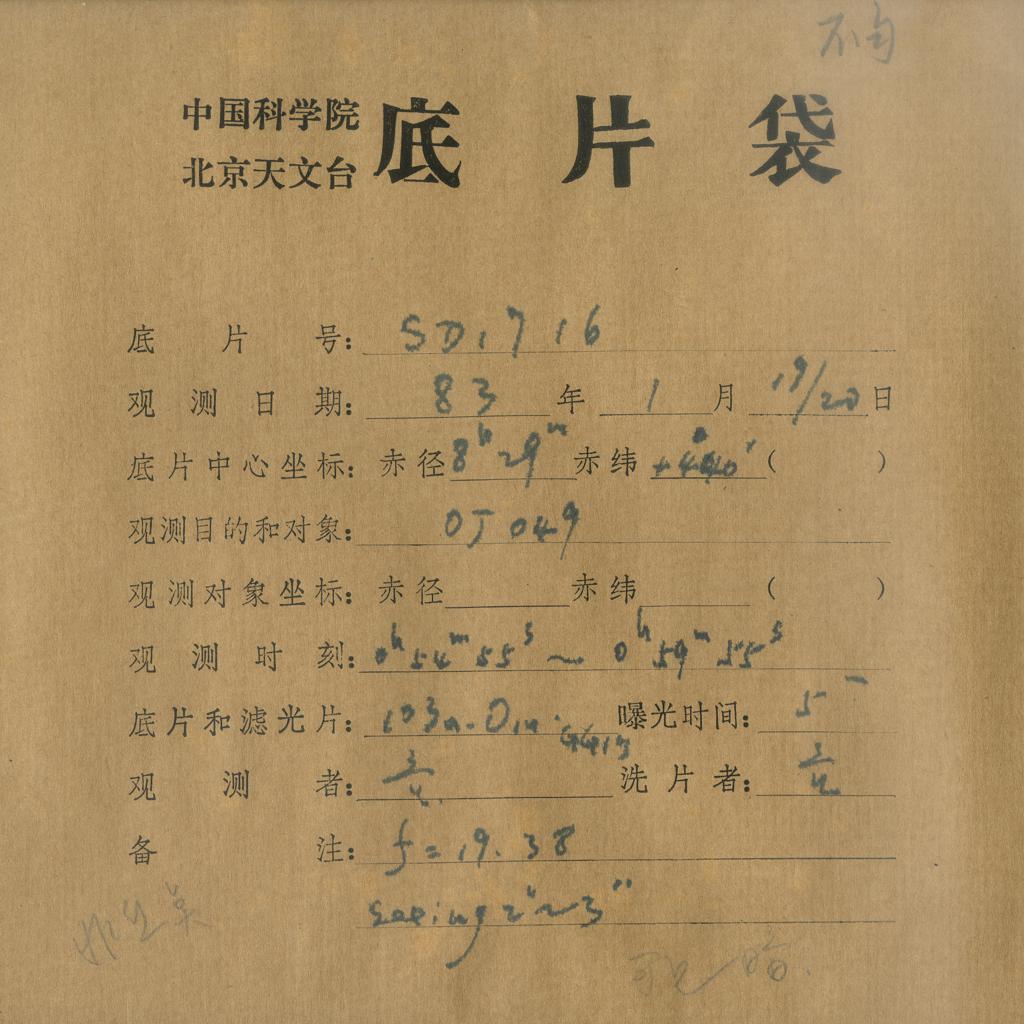 中国科学院
北京天文台
底片袋
底片号: SD1716
观测日期: 83 年 1 月 19/20 日
底片中心坐标: 赤径 8h 29m 赤纬 ( )
观测目的和对象: OJ 049
观测对象坐标: 赤径 赤纬 ( )
观测时刻: 0h 54m 55s ~ 0h 59m 55s
底片和滤光片: 曝光时间: 5
观测者: 洗片者:
备注: f=19.38
seeing 2"~3"